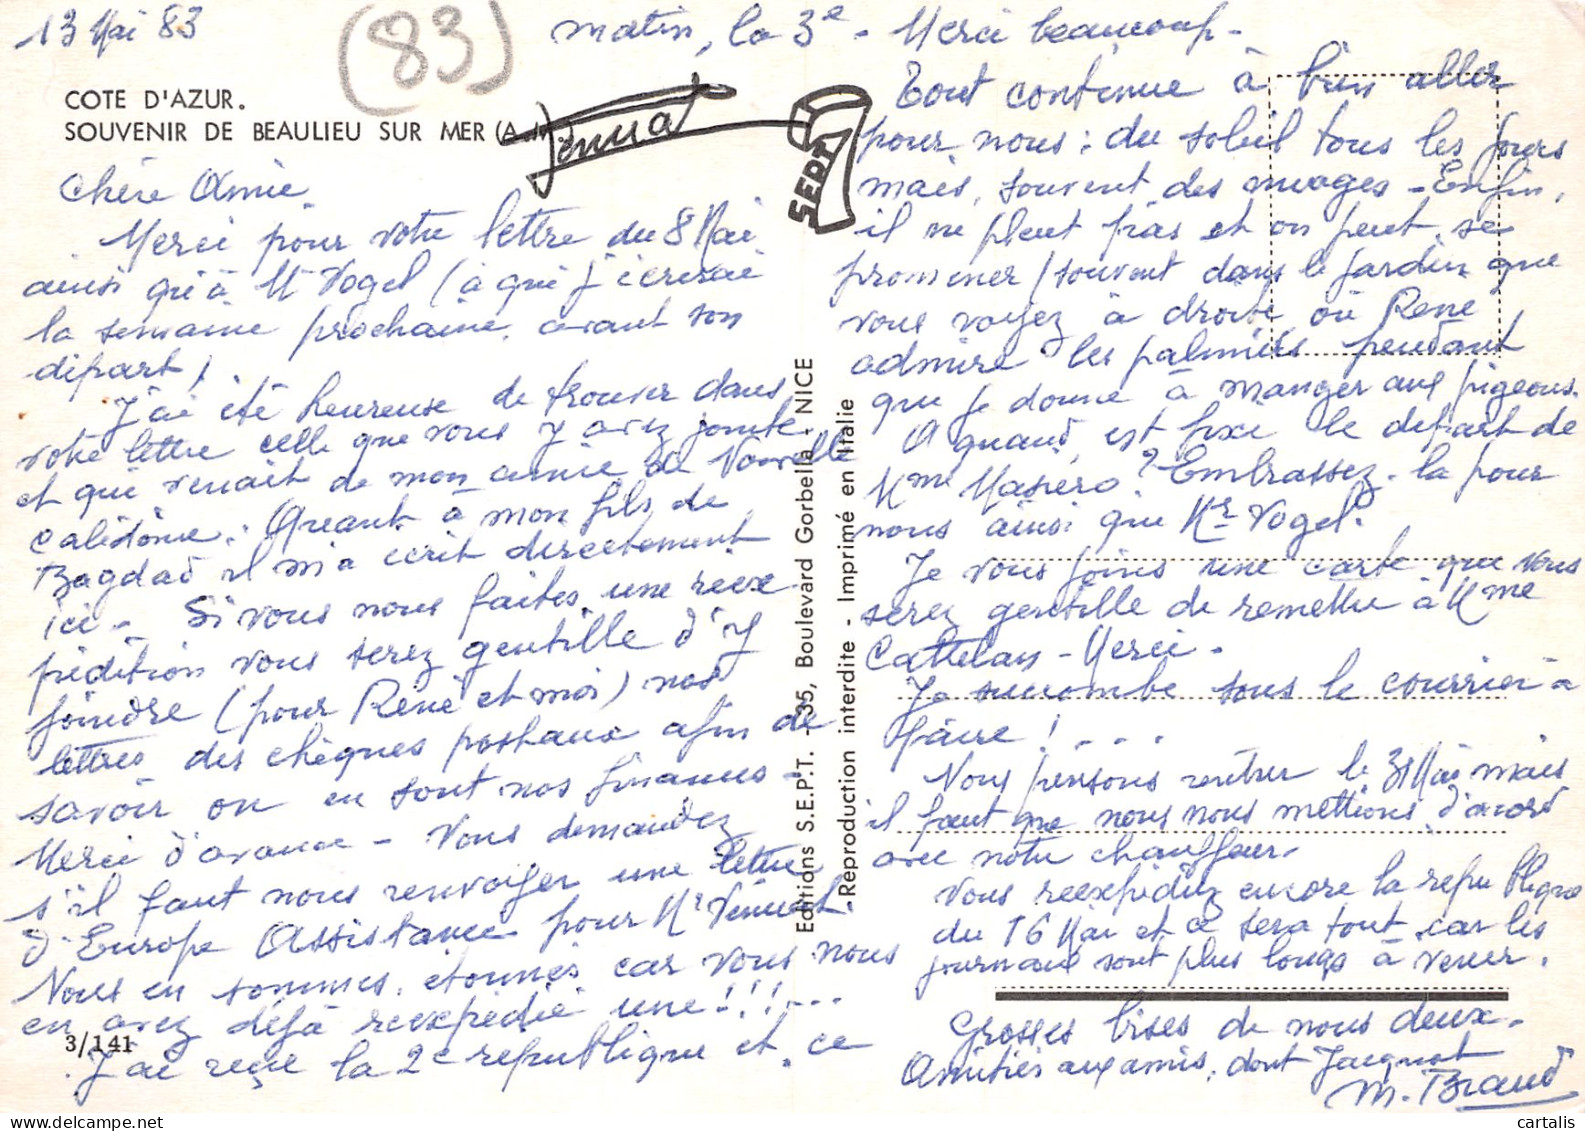 13 Mai 83
(83)
COTE D'AZUR.
SOUVENIR DE BEAULIEU SUR MER (A.-M.)
SEPT
Chère Amie.
Merci pour votre lettre du 8 Mai
ainsi qu'à Mr Vogel (à qui j'écrirai
la semaine prochaine, avant son
départ)
J'ai été heureuse de trouver dans
votre lettre celle que vous y avez jointe
et qui venait de mon amie de Nouvelle
Calédonie. Quant à mon fils de
Bagdad il m'a écrit directement
ici - Si vous nous faites une réex-
pédition vous serez gentille d'y
joindre (pour René et moi) nos
lettres des chèques postaux afin de
savoir où en sont nos finances -
Merci d'avance - Vous demandez
s'il faut nous renvoyer une lettre
d'Europe Assistance pour Mr
Nous en sommes étonnés car vous nous
en avez déjà réexpédié une!!!...
3/141
J'ai reçu la 2e république et, ce
matin, la 3e - Merci beaucoup -
Tout continue à bien aller
pour nous: du soleil tous les jours
mais, souvent des nuages - Enfin,
il ne pleut pas et on peut se
promener (souvent dans le jardin que
vous voyez à droite, où René
admire les palmiers pendant
que je donne à manger aux pigeons.
A quand est fixé le départ de
Mme Masiero? Embrassez-la pour
nous ainsi que Mr Vogel.
Je vous joins une carte que vous
serez gentille de remettre à Mme
Cattelan - Merci -
Je succombe sous le courrier à
faire!...
Nous pensons rentrer le 31 Mai mais
il faut que nous nous mettions d'accord
avec notre chauffeur.
Vous réexpédiez encore la république
du 16 Mai et ce sera tout car les
journaux sont plus longs à venir.
Grosses bises de nous deux.
Amitiés aux amis, dont Jacquot
M. Braud
Editions S.E.P.T. - 35, Boulevard Gorbella - NICE
Reproduction interdite - Imprimé en Italie
cartalis